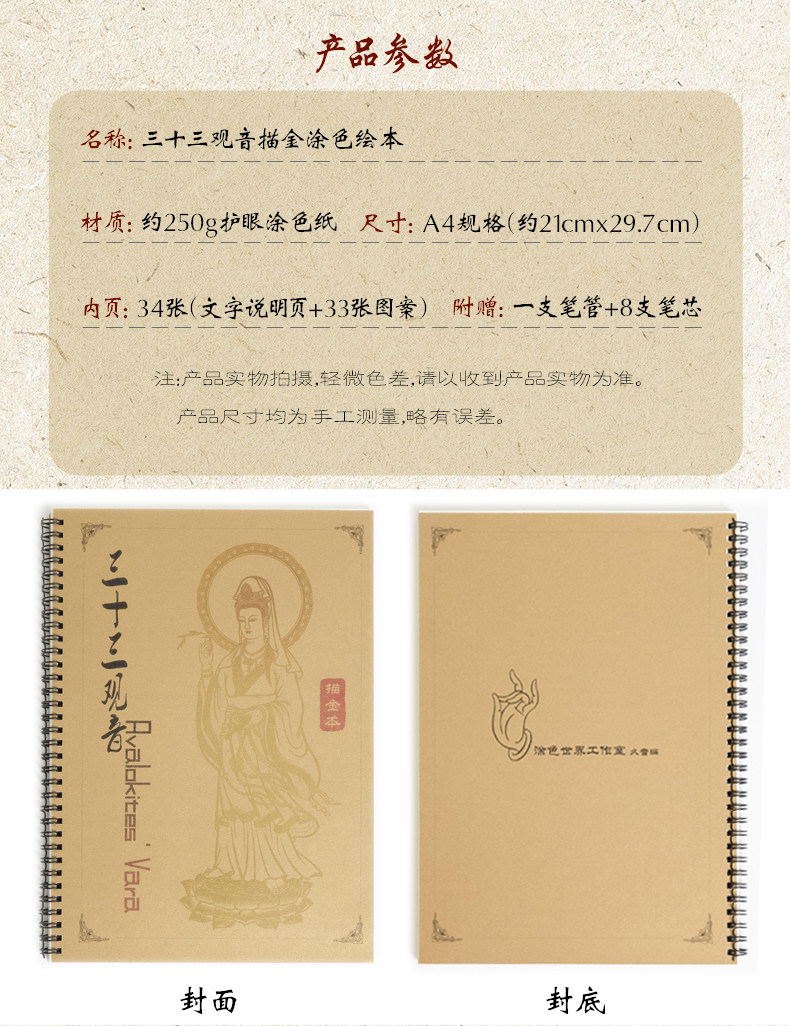 产品参数
名称: 三十三观音描金涂色绘本
材质: 约250g护眼涂色纸 尺寸: A4规格(约21cmx29.7cm)
内页: 34张(文字说明页+33张图案) 附赠: 一支笔管+8支笔芯
注:产品实物拍摄,轻微色差,请以收到产品实物为准。
产品尺寸均为手工测量,略有误差。
三十三观音
Avalokites' Vara
描金本
涂色世界工作室
封面
封底